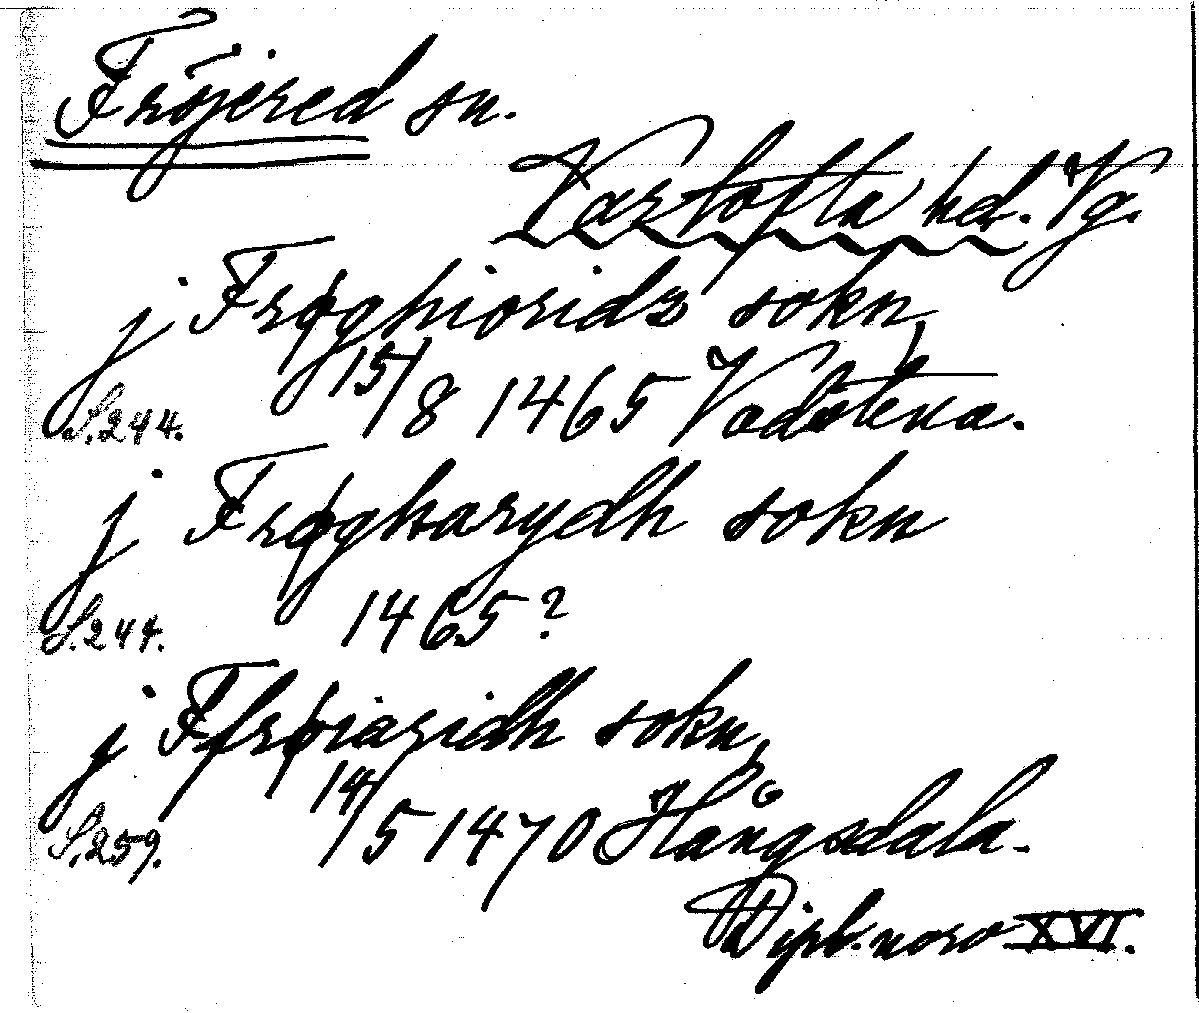 Fröjered sn.
Vartofta hd. Vg.
j Frøghioridz sokn,
S.244. 15/8 1465 Vadstena.
j Frøgharydh sokn
S.244. 1465?
j Ffrøiaridh sokn,
S.259. 14/5 1470 Hångsdala.
Dipl. norv XVI.